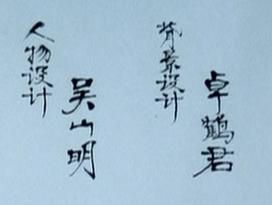 人物设计
吴山明
背景设计
卓鹤君